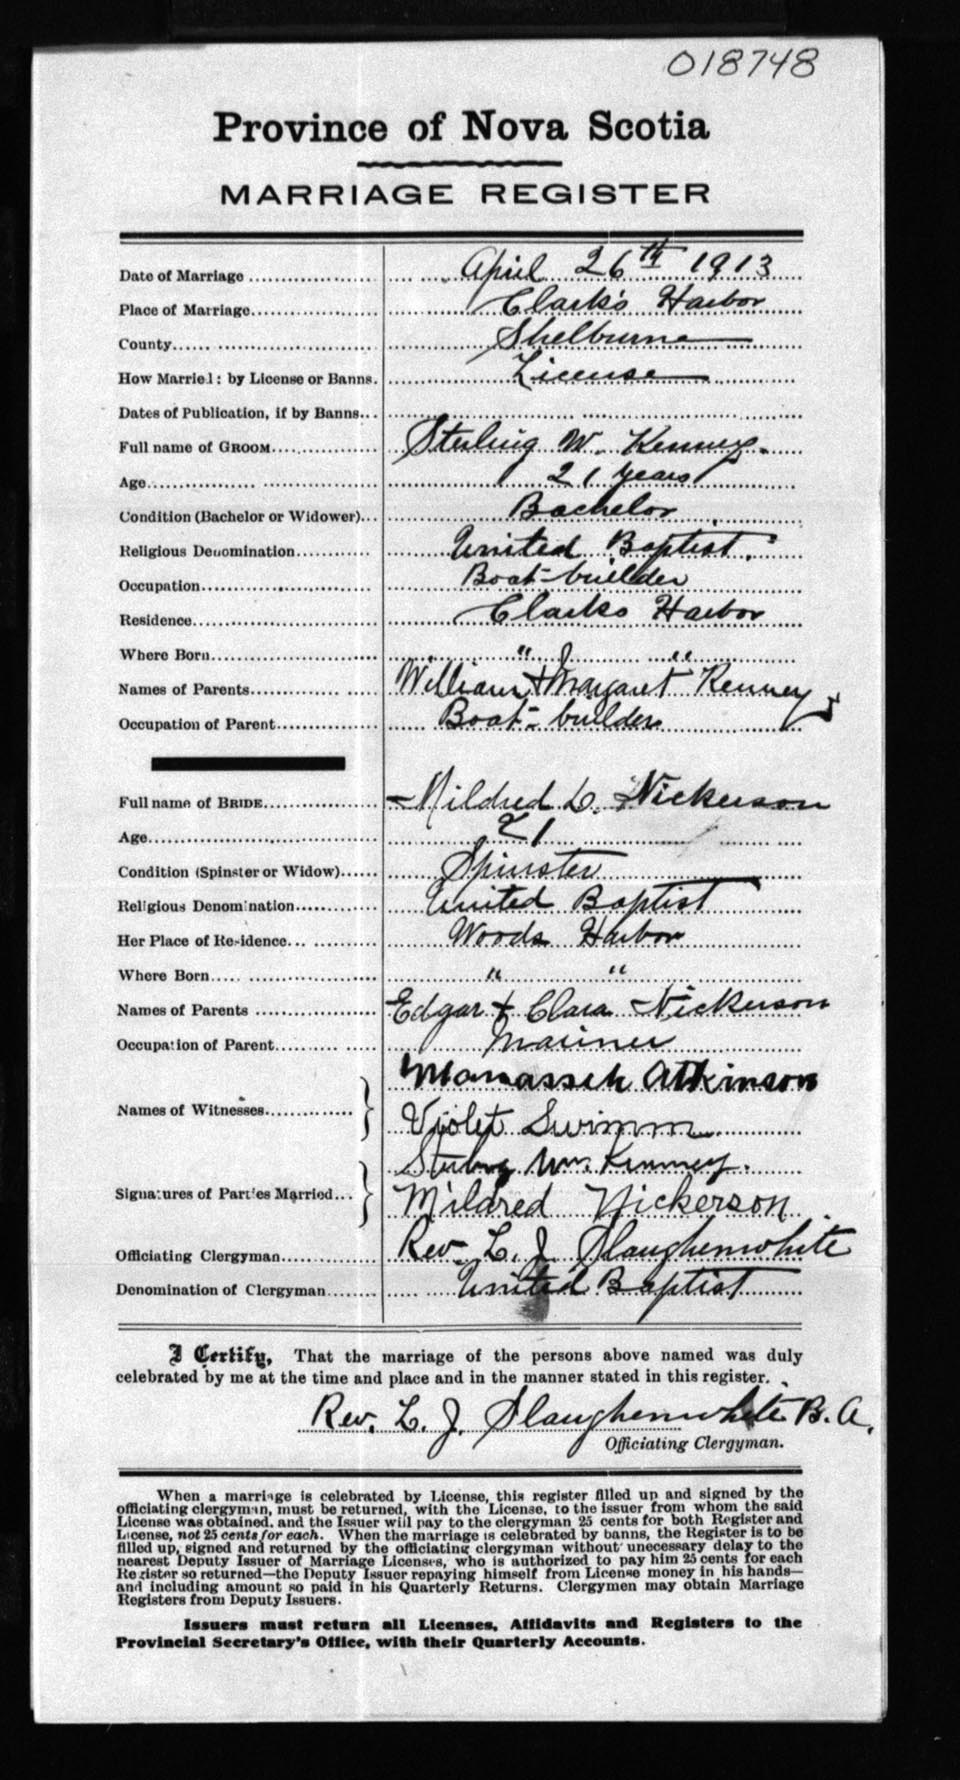 018748
Province of Nova Scotia
MARRIAGE REGISTER
Date of Marriage April 26th 1913
Place of Marriage Clark's Harbor
County Shelburne
How Married: by License or Banns. License
Dates of Publication, if by Banns
Full name of GROOM Sterling W. Kenney.
Age 21 years
Condition (Bachelor or Widower) Bachelor
Religious Denomination United Baptist.
Occupation Boat-builder
Residence Clarks Harbor
Where Born " "
Names of Parents William & Margaret Kenney
Occupation of Parent Boat-builder
Full name of BRIDE Mildred L. Nickerson
Age 21
Condition (Spinster or Widow) Spinster
Religious Denomination United Baptist
Her Place of Residence Woods Harbor
Where Born " "
Names of Parents Edgar & Clara Nickerson
Occupation of Parent Mariner
Names of Witnesses Manasseh Atkinson
Violet Swimm
Signatures of Parties Married Sterling Wm. Kenney.
Mildred Nickerson
Officiating Clergyman Rev. L. J. Slaughenwhite
Denomination of Clergyman United Baptist
I Certify, That the marriage of the persons above named was duly
celebrated by me at the time and place and in the manner stated in this register.
Rev. L. J. Slaughenwhite B. A.
Officiating Clergyman.
When a marriage is celebrated by License, this register filled up and signed by the
officiating clergyman, must be returned, with the License, to the issuer from whom the said
License was obtained, and the Issuer will pay to the clergyman 25 cents for both Register and
License, not 25 cents for each. When the marriage is celebrated by banns, the Register is to be
filled up, signed and returned by the officiating clergyman without unnecessary delay to the
nearest Deputy Issuer of Marriage Licenses, who is authorized to pay him 25 cents for each
Register so returned—the Deputy Issuer repaying himself from License money in his hands—
and including amount so paid in his Quarterly Returns. Clergymen may obtain Marriage
Registers from Deputy Issuers.
Issuers must return all Licenses, Affidavits and Registers to the
Provincial Secretary's Office, with their Quarterly Accounts.